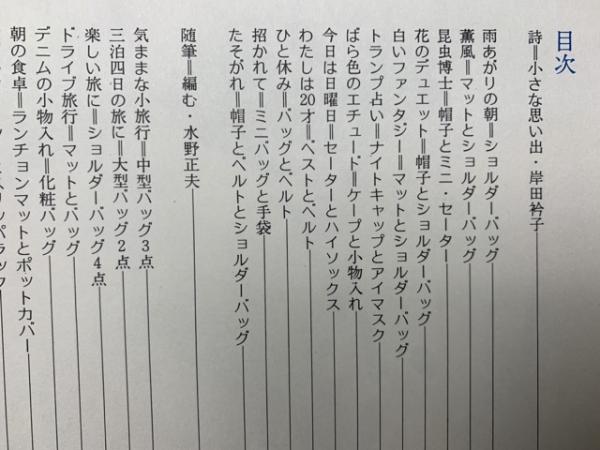 目次
詩＝小さな思い出・岸田衿子
雨あがりの朝＝ショルダーバッグ
薫風＝マットとショルダーバッグ
昆虫博士＝帽子とミニ・セーター
花のデュエット＝帽子とショルダーバッグ
白いファンタジー＝マットとショルダーバッグ
トランプ占い＝ナイトキャップとアイマスク
ばら色のエチュード＝ケープと小物入れ
今日は日曜日＝セーターとハイソックス
わたしは20才＝ベストとベルト
ひと休み＝バッグとベルト
招かれて＝ミニバッグと手袋
たそがれ＝帽子とベルトとショルダーバッグ
随筆＝編む・水野正夫
気ままな小旅行＝中型バッグ3点
三泊四日の旅に＝大型バッグ2点
楽しい旅に＝ショルダーバッグ4点
ドライブ旅行＝マットとバッグ
デニムの小物入れ＝化粧バッグ
朝の食卓＝ランチョンマットとポットカバー